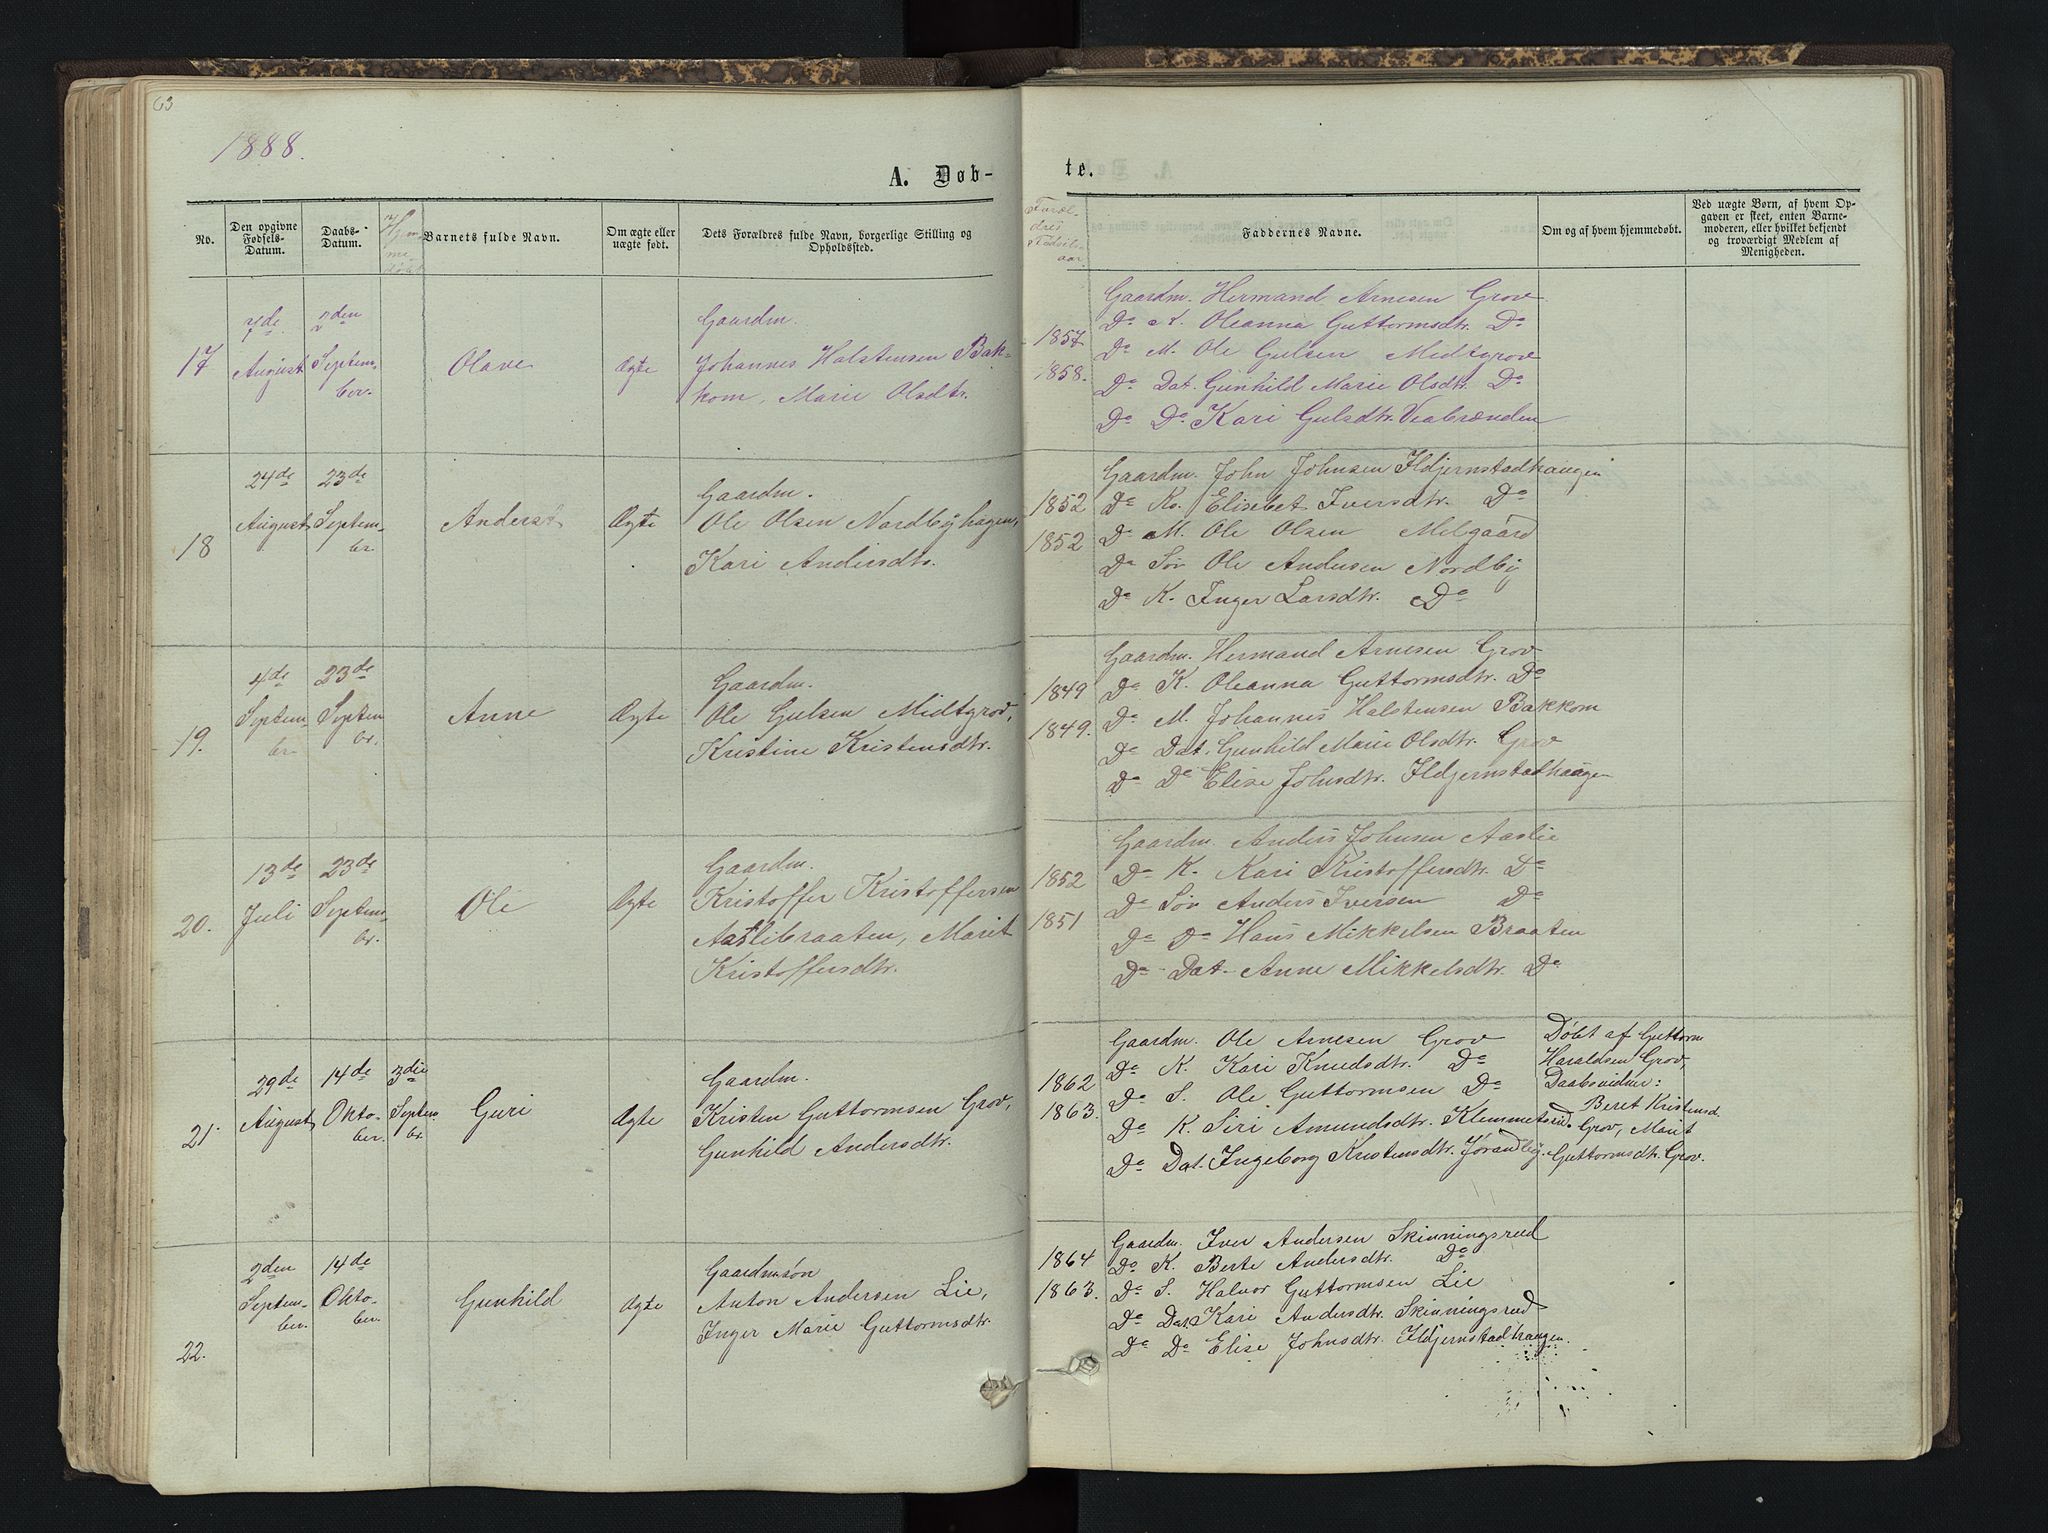 63
1888.
A. Døb-
No.
Den opgivne Fødsels-Datum.
Daabs-Datum.
Hjemmedøbt
Barnets fulde Navn.
Om ægte eller uægte født.
Dets Forældres fulde Navn, borgerlige Stilling og Opholdssted.
17
7de August
2den September.
Olave
Ægte
Gaardm.
Johannes Halstensen Bak-
kom, Marie Olsdtr.
18
24de August
23de September.
Anders
Ægte
Gaardm.
Ole Olsen Nordbyhagen,
Kari Andersdtr.
19.
4de September.
23de September.
Anne
Ægte
Gaardm.
Ole Gulsen Midtgrov,
Kristine Kristensdtr.
20.
13de Juli
23de September.
Ole
Ægte
Gaardm.
Kristoffer Kristoffersen
Aaslibraaten, Marit
Kristoffersdtr.
21.
29de August
14de Oktober.
3die September.
Guri
Ægte
Gaardm.
Kristen Guttormsen Grov,
Gunhild Andersdtr.
22.
2den September.
14de Oktober.
Gunhild
Ægte
Gaardmsøn
Anton Andersen Lie,
Inger Marie Guttormsdtr.
te.
Forældres Fødselsaar
Faddernes Navne.
Om og af hvem hjemmedøbt.
Ved uægte Børn, af hvem Op-
gaven er skeet, enten Barne-
moderen, eller hvilket bekjendt
og troværdigt Medlem af
Menigheden.
1857
1858.
Gaardm. Hermand Arnesen Grov
Do K. Oleanna Guttormsdtr. Do
Do M. Ole Gulsen Midtgrov
Do Dat. Gunhild Marie Olsdtr. Do
Do Do Kari Gulsdtr. Viabrænden
1852
1852
Gaardm. John Johnsen Ildjernstadhaugen
Do Ko. Elisebet Iversdtr. Do
Do M. Ole Olsen Melgaard
Do Søn Ole Andersen Nordby
Do K. Inger Larsdtr. Do
1849
1849.
Gaardm. Hermand Arnesen Grov
Do K. Oleanna Guttormsdtr. Do
Do M. Johannes Halstensen Bakkom
Do Dat. Gunhild Marie Olsdtr. Grov
Do Do Elise Johnsdtr. Ildjernstadhaugen
1852
1851
Gaardm. Anders Johnsen Aaslie
Do K. Kari Kristoffersdtr. Do
Do Søn Anders Iversen Do
Do Do Hans Mikkelsen Braaten
Do Dat. Anne Mikkelsdtr. Do
1862
1863.
Gaardm. Ole Arnesen Grov
Do K. Kari Knudsdtr. Do
Do S. Ole Guttormsen Do
Do K. Siri Amundsdtr. Klemmetsrud.
Do Dat. Ingeborg Kristensdtr. Jørandby.
Døbt af Guttorm
Haraldsen Grov,
Daabsvidner:
Beret Kristensd.
Grov, Marit
Guttormsdtr. Grov.
1864
1863.
Gaardm. Iver Andersen Skinningsrud
Do K. Berte Andersdtr. Do
Do S. Halvor Guttormsen Lie
Do Dat. Kari Andersdtr. Skinningsrud
Do Do Elise Johnsdtr. Ildjernstadhaugen.